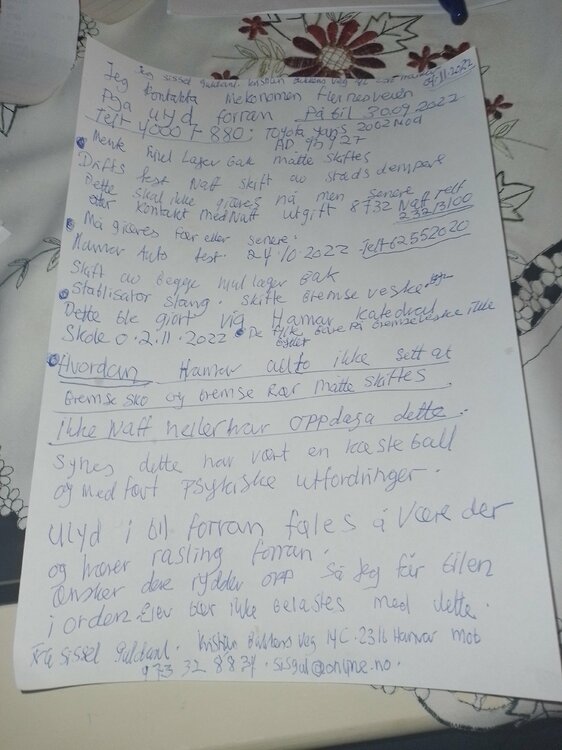 Jeg sissel guldbrl. kristian Bakkens veg 14c 2316 Hamar
04.11.2022
Jeg kontakta Mekonomen Furnesveien
Pga ulyd forran på bil 30.09.2022
Telf 4000 7 880. Toyota Yaris 2002 Mod
AD 95927
Mente hjul Lager bak måtte skiftes
Drifts test Naff skift av støds dempare
Dette skal ikke gjøres nå men senere
etter kontakt med Naff utgift 8732 Naff telf
232/3100
Må gjøres før eller senere.
Hamar Auto test. 24/10.2022. Telf 62552020
Skift av begge hjul lager bak
Stablisator stang. skifte bremse veske
Dette ble gjort vig Hamar katedral
Skole 0.2.11.2022 De fikk bare på bremseveske ikke
byttet
Hvordan Hamar auto ikke sett at
bremse sko og bremse rør måtte skiftes
ikke Naff heller har oppdaga dette.
Synes dette har vært en kasteball
og medført Psykiske utfordringer.
ulyd i bil forran føles å være der
og hører rasling forran.
Ønsker dere rydder opp Så Jeg får bilen
i orden. Elev bør ikke belastes med dette.
Fra sissel Guldbrl. Kristian Bakkens veg 14C. 2316 Hamar mob
473 32 8834. sisgul@online.no.